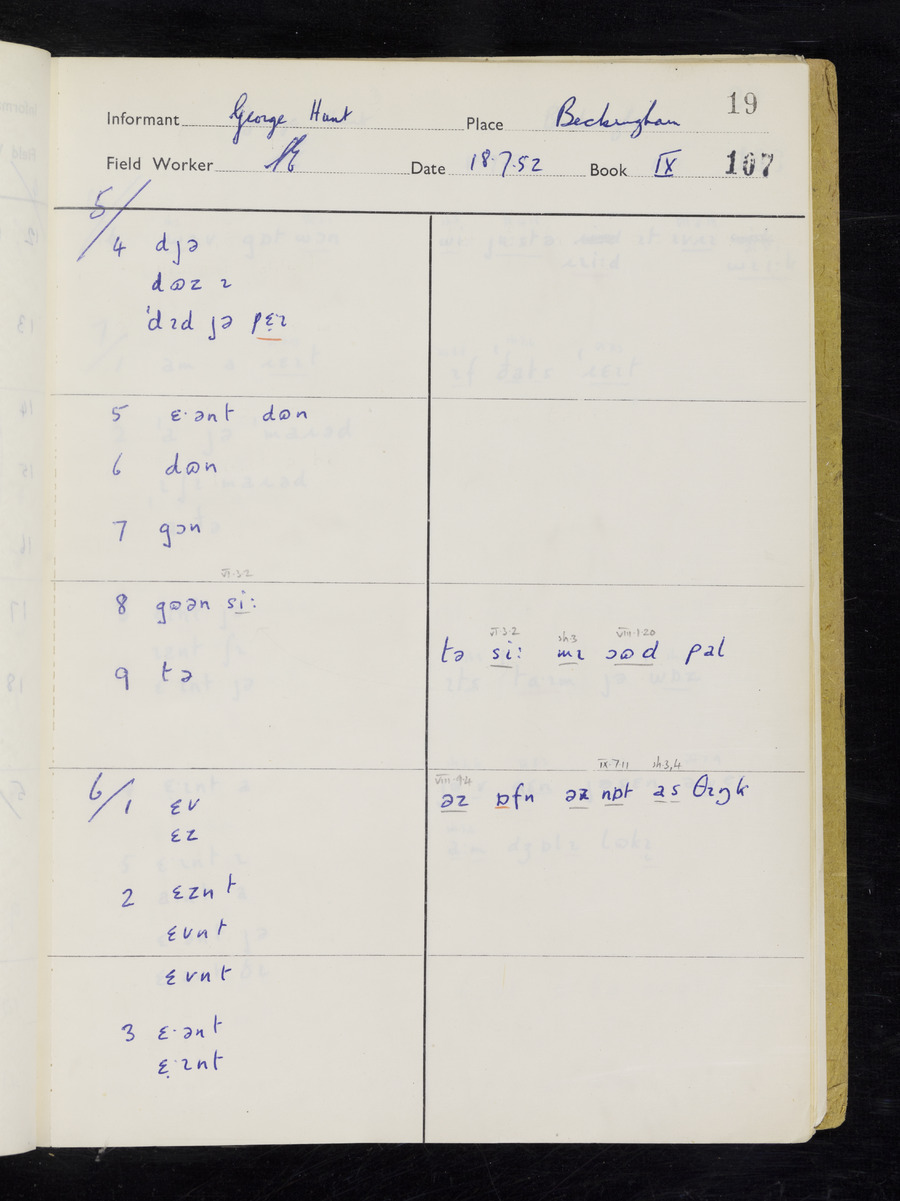 19
Informant George Hunt Place Beckingham
Field Worker Date 18.7.52 Book IX 107
5/
4 dȷə
dɷz ɪ
ˈdɪd ȷə pɛ̣ɪ
5 ɛ·ənt dɷn
6 dɷn
7 gɔn
VI.3.2
8 gɷən sị:
9 tə
VI.3.2 sh.3 VIII.1.20
tə sị: mɪ ɔɷd pal
6/
1 ɛv
ɛz
VIII.9.4 IX.7.11 sh.3,4
əz ɒfn əz nɒt as θɪŋk
2 ɛznt
ɛvnt
ɛvnt
3 ɛ·ənt
ɛ̣·ɪnt